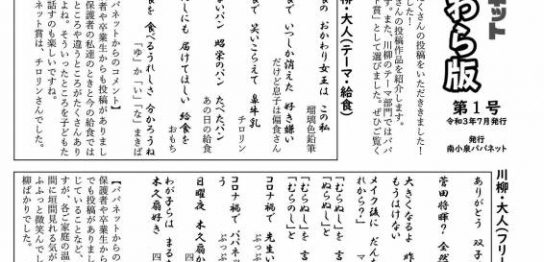 ネット
わら版
第１号
令和3年7月発行
発行
南小泉パパネット
たくさんの投稿をいただきました！
さんの投稿作品を紹介します。
また、川柳のテーマ部門ではパパ
ト賞」として選びました。ぜひご覧く
柳・大人（テーマ・給食）
食の おかわり女王は この私
瑠璃色鉛筆
て いつしか消えた 好き嫌い
だけど息子は偏食さん
て 笑いこらえて 鼻牛乳
チロリン
ない パン 昭栄のパン たべたパン
あの日の給食
しにも 届けてほしい 給食を
おもち
食を 食べるうれしさ 分かろうね
「ゆ」か「い」「な」まきば
パネットからのコメント】
保護者や卒業生からも投稿がありまし
保護者の私達のときと今の給食では
ところや違うところがたくさんあり
よね。そういったところを子どもた
話すのも楽しいですね。
ネット賞は、チロリンさんでした。
川柳・大人（フリー
ありがとう 双子
菅田将暉？ 全然
四
大きくなるよ 昨
もうはけない
ぶっ
メイク後に だんな
れから？」
マ
「むらぬし」を 言
「ぬらぬし」と
「むらのし」を 言
「むらぬし」と
コロナ禍で 先生い
ぶっ
コロナ禍で パパネッ
う
ぶっ
日曜夜 木久扇か
四
わが子らは まるで
木久扇好き
四
【パパネットからの
保護者や卒業生から
でも投稿がありまし
していることなど、
すが、各ご家庭の温
間に垣間見れる気が
ふふっと微笑んでし
柳ばかりでした。